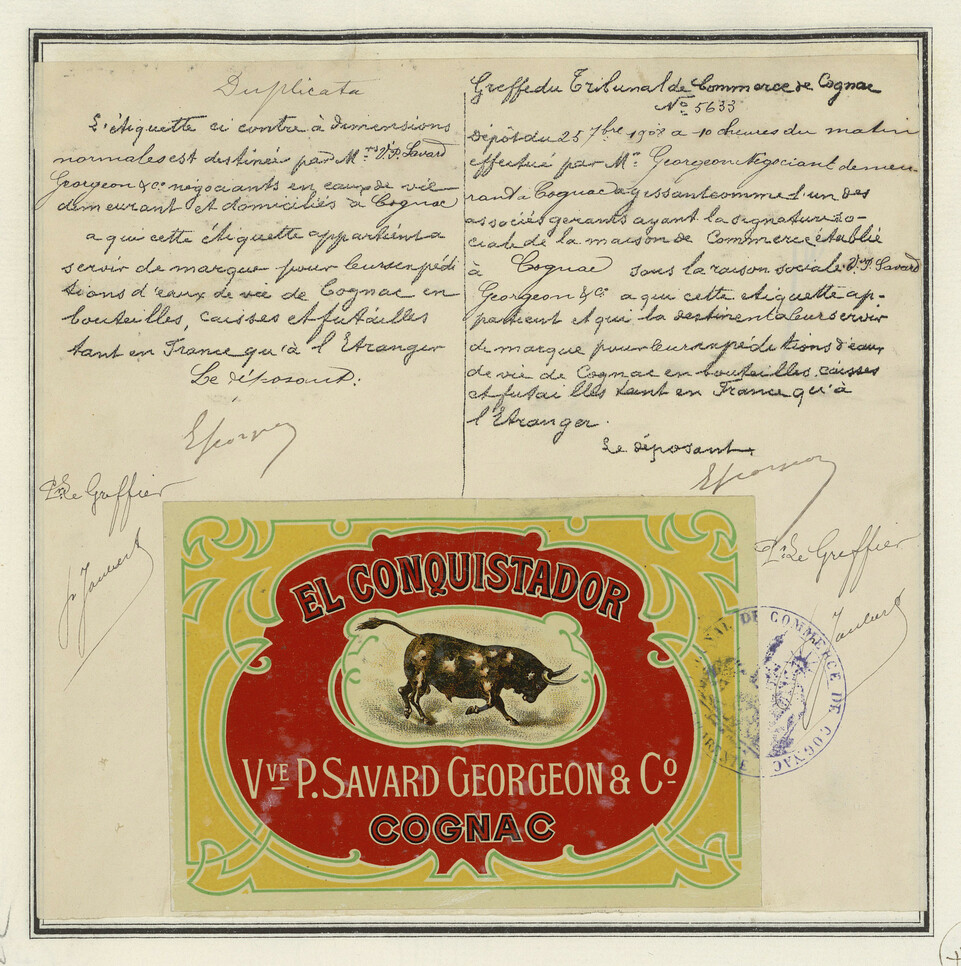 Duplicata
L'étiquette ci contre à dimensions
normales est destinée par Mrs Ve P. Savard
Georgeon & Co négociants en eaux de vie
demeurant et domiciliés à Cognac
a qui cette étiquette appartient a
servir de marque pour leurs expédi
tions d'eaux de vie de Cognac en
bouteilles, caisses et futailles
tant en France qu'à l'Etranger
Le déposant.
Pr Le Greffier
Greffe du Tribunal de Commerce de Cognac
No 5633
Dépôt du 25 7bre 1908 a 10 heures du matin
effectué par Mr Georgeon Négociant demeu
rant à Cognac agissant comme l'un des
associés gerants ayant la signature so-
ciale de la maison de Commerce établie
à Cognac sous la raison sociale Ve P. Savard
Georgeon & Co a qui cette etiquette ap-
partient et qui la destinent a leur servir
de marque pour leurs expéditions d'eaux
de vie de Cognac en bouteilles, caisses
et futailles tant en France qu'à
l'Etranger.
Le déposant
Pr Le Greffier
EL CONQUISTADOR
VVE P. SAVARD GEORGEON & CO
COGNAC
DE COMMERCE DE COGNAC